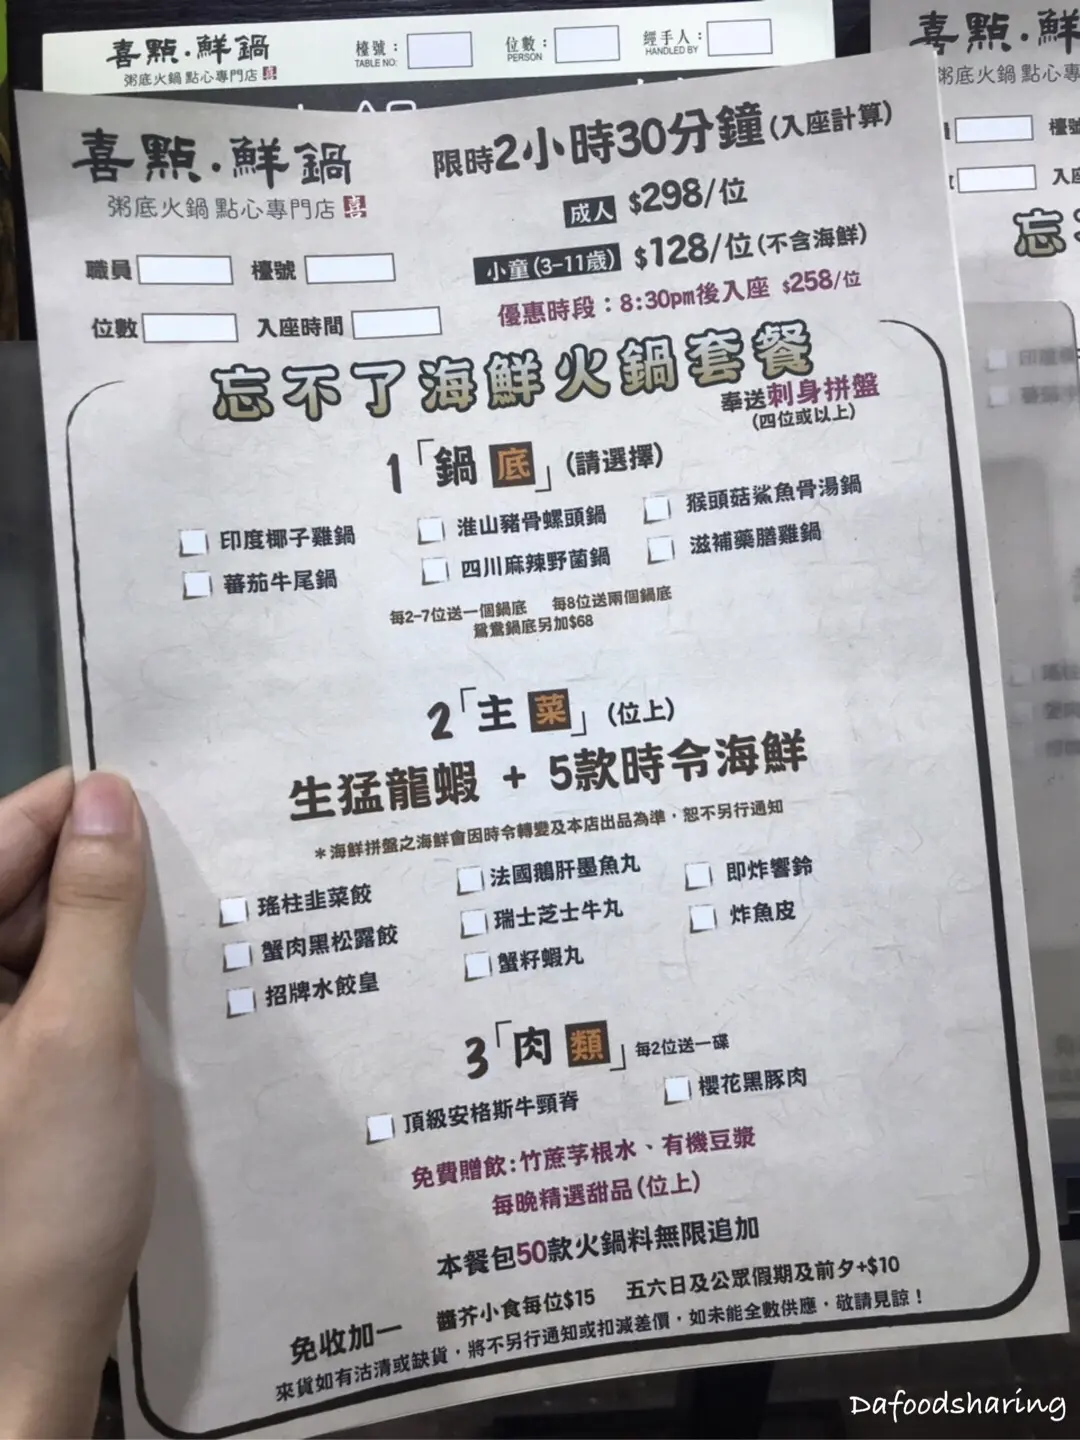 喜點．鮮鍋
粥底火鍋 點心專門店 喜
檯號：
TABLE NO:
位數：
PERSON
經手人：
HANDLED BY
喜點．鮮鍋
粥底火鍋 點心專門店 喜
限時2小時30分鐘(入座計算)
成人 $298/位
小童(3-11歲) $128/位(不含海鮮)
優惠時段：8:30pm後入座 $258/位
職員 檯號
位數 入座時間
忘不了海鮮火鍋套餐
奉送刺身拼盤
(四位或以上)
1「鍋底」(請選擇)
印度椰子雞鍋 淮山豬骨螺頭鍋 猴頭菇鯊魚骨湯鍋
蕃茄牛尾鍋 四川麻辣野菌鍋 滋補藥膳雞鍋
每2-7位送一個鍋底 每8位送兩個鍋底
鴛鴦鍋底另加$68
2「主菜」(位上)
生猛龍蝦 + 5款時令海鮮
＊海鮮拼盤之海鮮會因時令轉變及本店出品為準，恕不另行通知
瑤柱韭菜餃 法國鵝肝墨魚丸 即炸響鈴
蟹肉黑松露餃 瑞士芝士牛丸 炸魚皮
招牌水餃皇 蟹籽蝦丸
3「肉類」每2位送一碟
頂級安格斯牛頸脊 櫻花黑豚肉
免費贈飲：竹蔗茅根水、有機豆漿
每晚精選甜品(位上)
本餐包50款火鍋料無限追加
免收加一 醬芥小食每位$15 五六日及公眾假期及前夕+$10
來貨如有沽清或缺貨，將不另行通知或扣減差價，如未能全數供應，敬請見諒！
喜點．鮮
粥底火鍋 點心專
檯號
入座
忘
Dafoodsharing